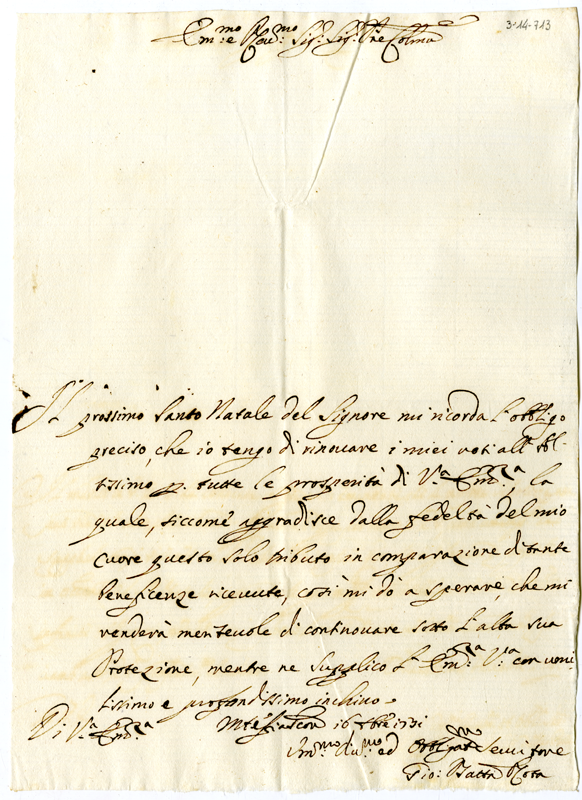 3-14-713
Em:mo e Rev:mo Sig:r Sig:r P̃ne Colmo
Il prossimo Santo Natale del Signore mi ricorda l'obbligo
preciso, che io tengo di rinovare i miei voti all'Al-
tissimo p. tutte le prosperità di V:ra Em:za, la
quale, siccome aggradisce dalla fedeltà del mio
cuore questo solo tributo in comparazione di tante
beneficenze ricevute, così mi dò a sperare, che mi
renderà meritevole di continovare sotto l'alta sua
Protezione, mentre ne supplico l'Em:za V:ra con umi
lissimo e profondissimo inchino.
Di V:ra Em:za
Montefiascone 16 Xbre 1731
Um:mo Div:mo ed Obblig:mo Servitore
Gio: Batta Rota